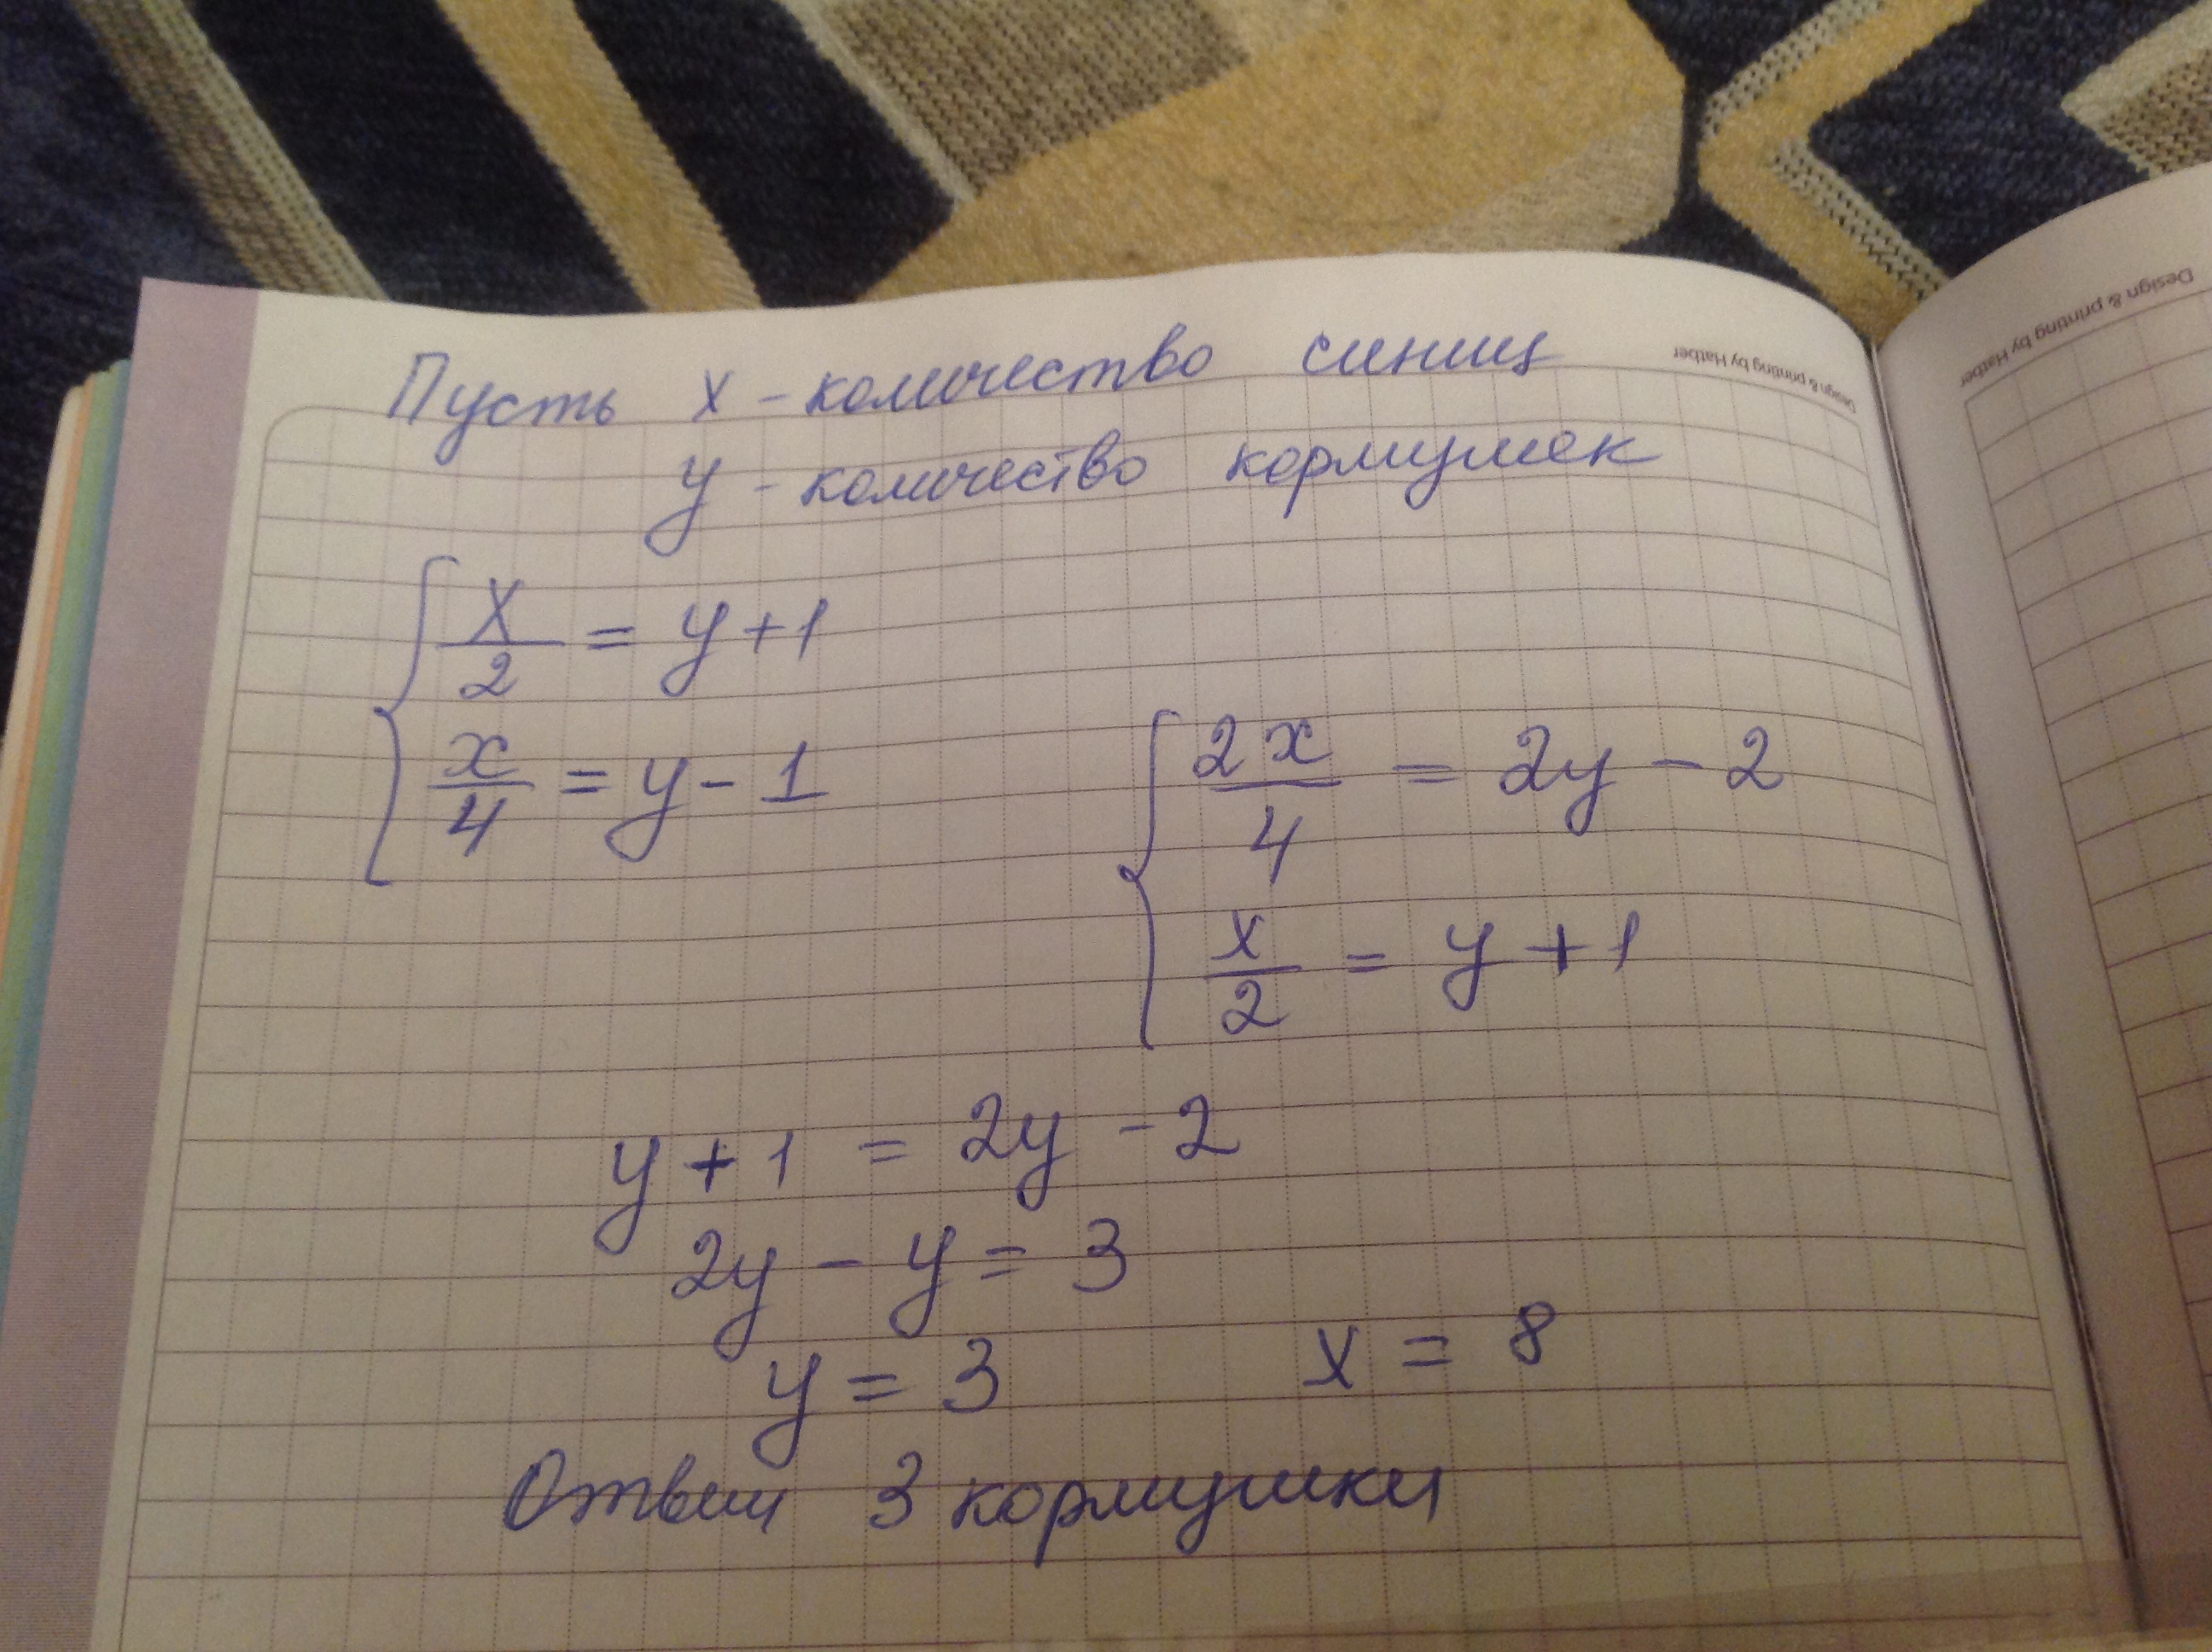 Design & printing by Hatber
Design & printing by Hatber
Пусть x - количество синиц
y - количество кормушек
x/2 = y + 1
x/4 = y - 1
2x/4 = 2y - 2
x/2 = y + 1
y + 1 = 2y - 2
2y - y = 3
y = 3 x = 8
Ответ 3 кормушки